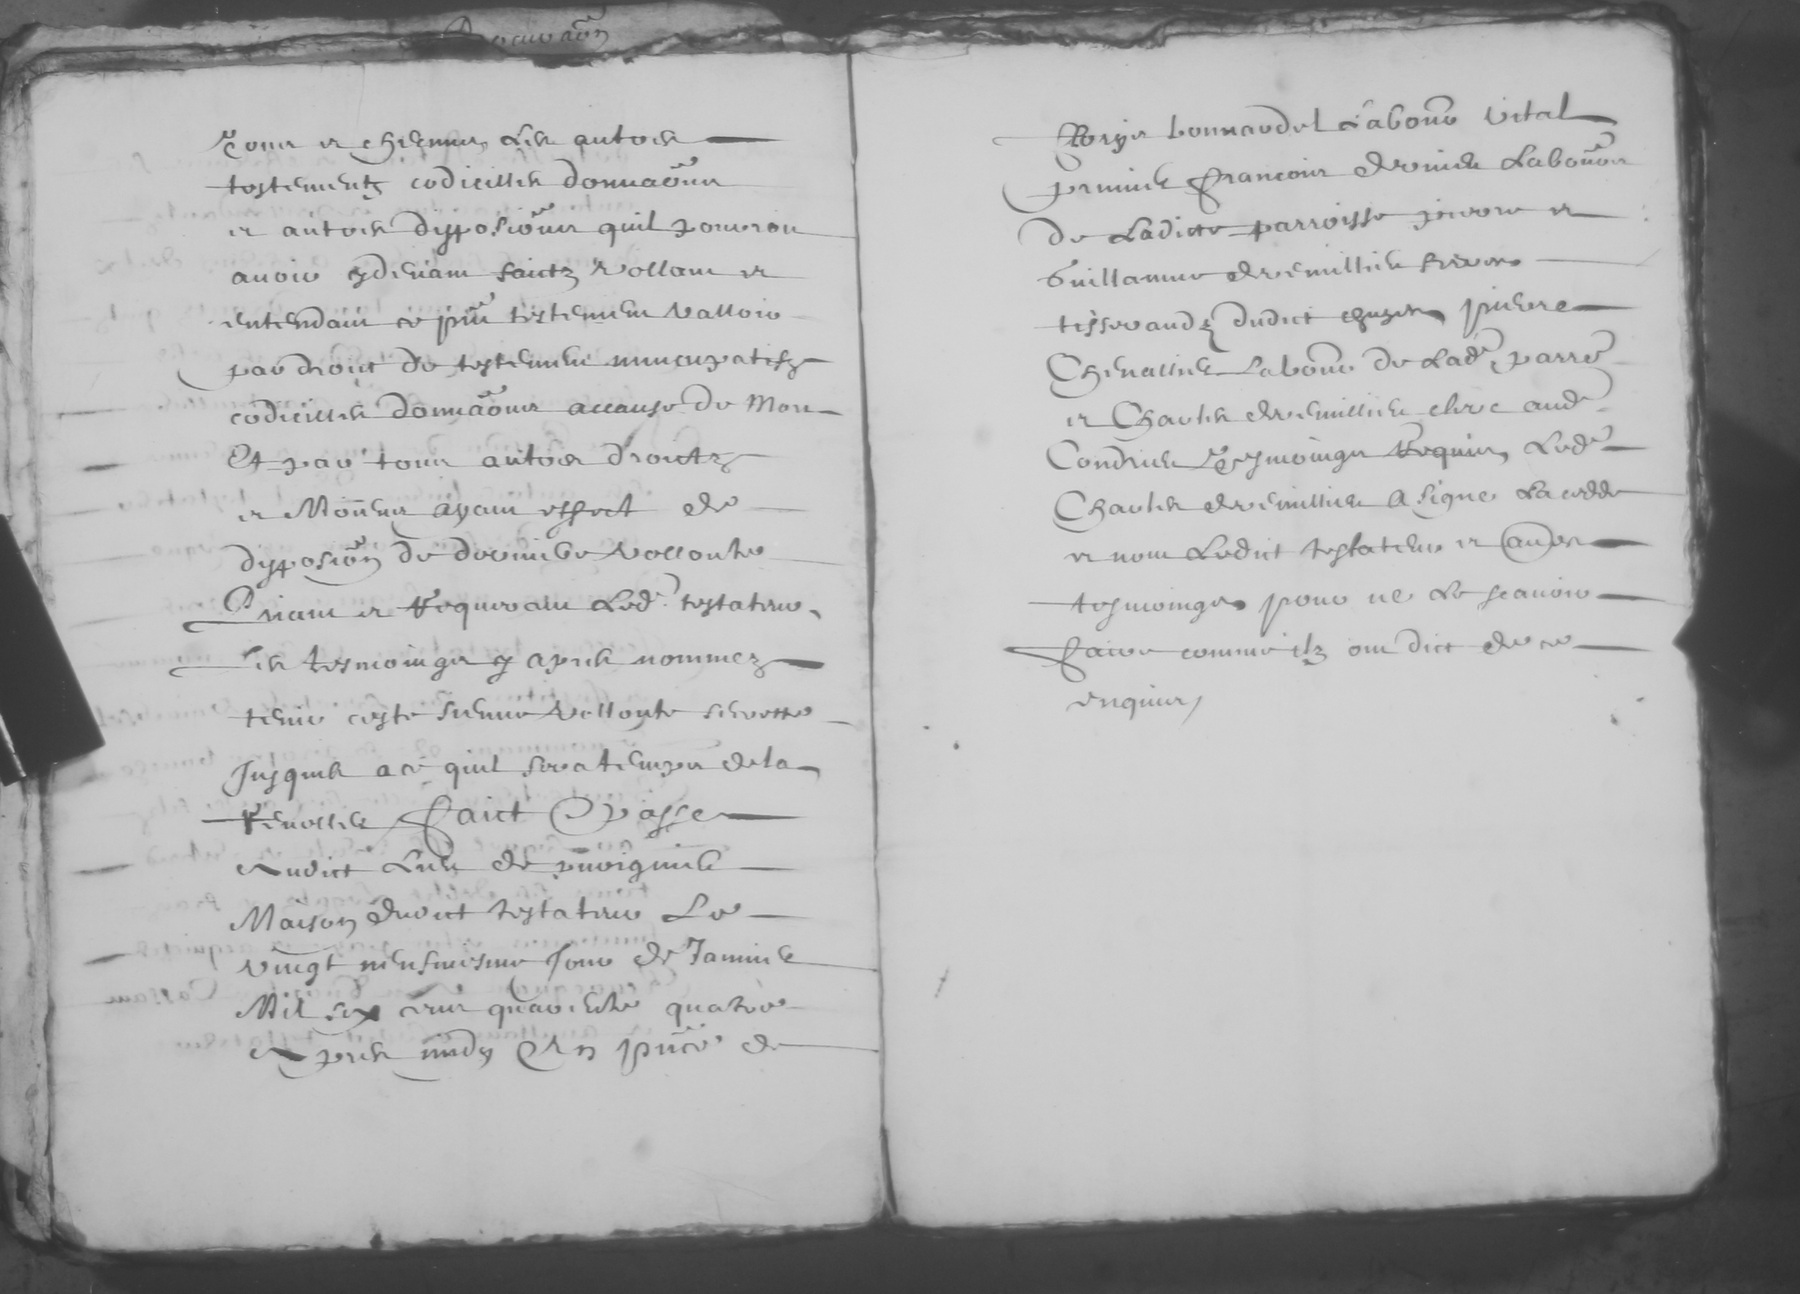 tous et chescungs les autres
testements codicilles donnaõns
et autres dispositiõns quil pourroit
avoir cy devant faictz Vollant et
entendant ce pnt testement Valloir
par droict de testement nuncupatif
codicilles donnaõns a cause de Mort
Et par tous autres droictz
et Moiens ayant effect de
disposiõn de derniere Vollonte
Priant et Requerant Led. testateur
les tesmoings cy apres nommez
tenir ceste sienne Vollonte secrette
Jusques a ce quil sera temps de la
Reveller Faict & passe
Audict Lieu de
Maison dudict testateur Le
vingt neufviesme Jour de Janvier
Mil six cens quarente quatre
Apres midy En pnce de
bonnardel Laboure Vital
François Laboureur
de Ladicte parroisse et
Guillaume freres
tisserandz dudict pierre
Chevallier Laboure de Lade parre
et Charles clerc aude
Condrieu Tesmoings Requis Led
Charles A signe La cedde
et non Ledict testateur et autres
tesmoings pour ne Le sçavoir
faire comme ilz ont dict de ce
enquis